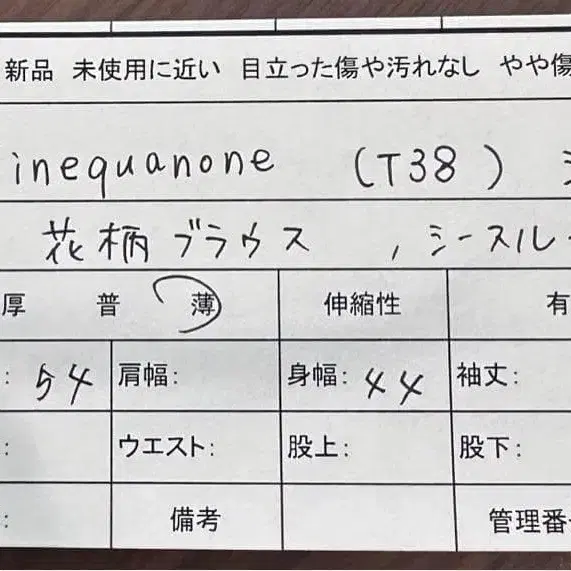 新品 未使用に近い 目立った傷や汚れなし やや傷
inequanone (T38)
花柄ブラウス , シースル
厚 普 薄 伸縮性 有
: 54 肩幅: 身幅: 44 袖丈:
: ウエスト: 股上: 股下:
: 備考 管理番